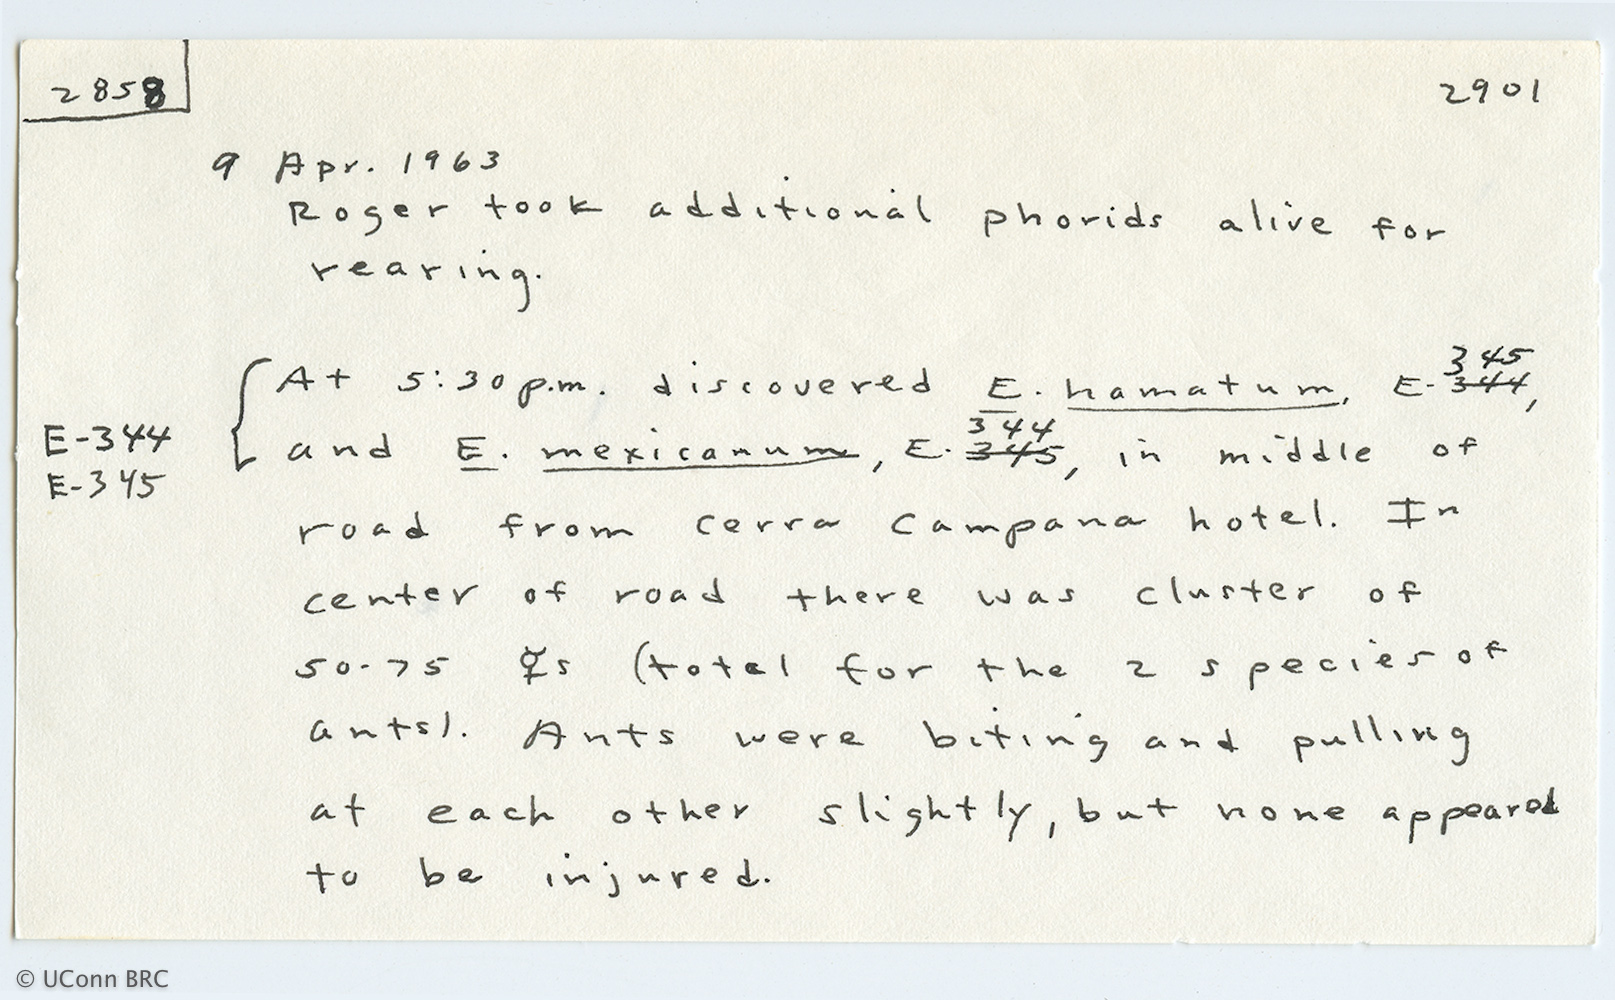 2858
2901
9 Apr. 1963
Roger took additional phorids alive for
rearing.
At 5:30 p.m. discovered E. hamatum, E-345 ~~344~~,
E-344
and E. mexicanum, E-344 ~~345~~, in middle of
E-345
road from cerra campana hotel. In
center of road there was cluster of
50-75 ☿s (total for the 2 species of
ants). Ants were biting and pulling
at each other slightly, but none appeared
to be injured.
© UConn BRC